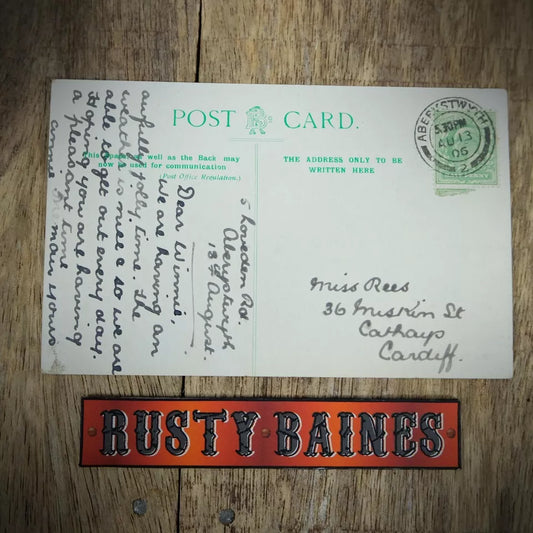 POST CARD.
This space, as well as the Back may
now be used for communication
(Post Office Regulation.)
THE ADDRESS ONLY TO BE
WRITTEN HERE
5 Loveden Rd.
Aberystwyth
13th August.
Dear Winnie,
We are having an
awfully jolly time. The
weather is nice & so we are
able to get out every day.
Hoping you are having
a pleasant time
from yours
Annie
Miss Rees
36 Miskin St
Cathays
Cardiff.
ABERYSTWYTH
5.30PM
AU 13
06
2
HALF PENNY
RUSTY BAINES